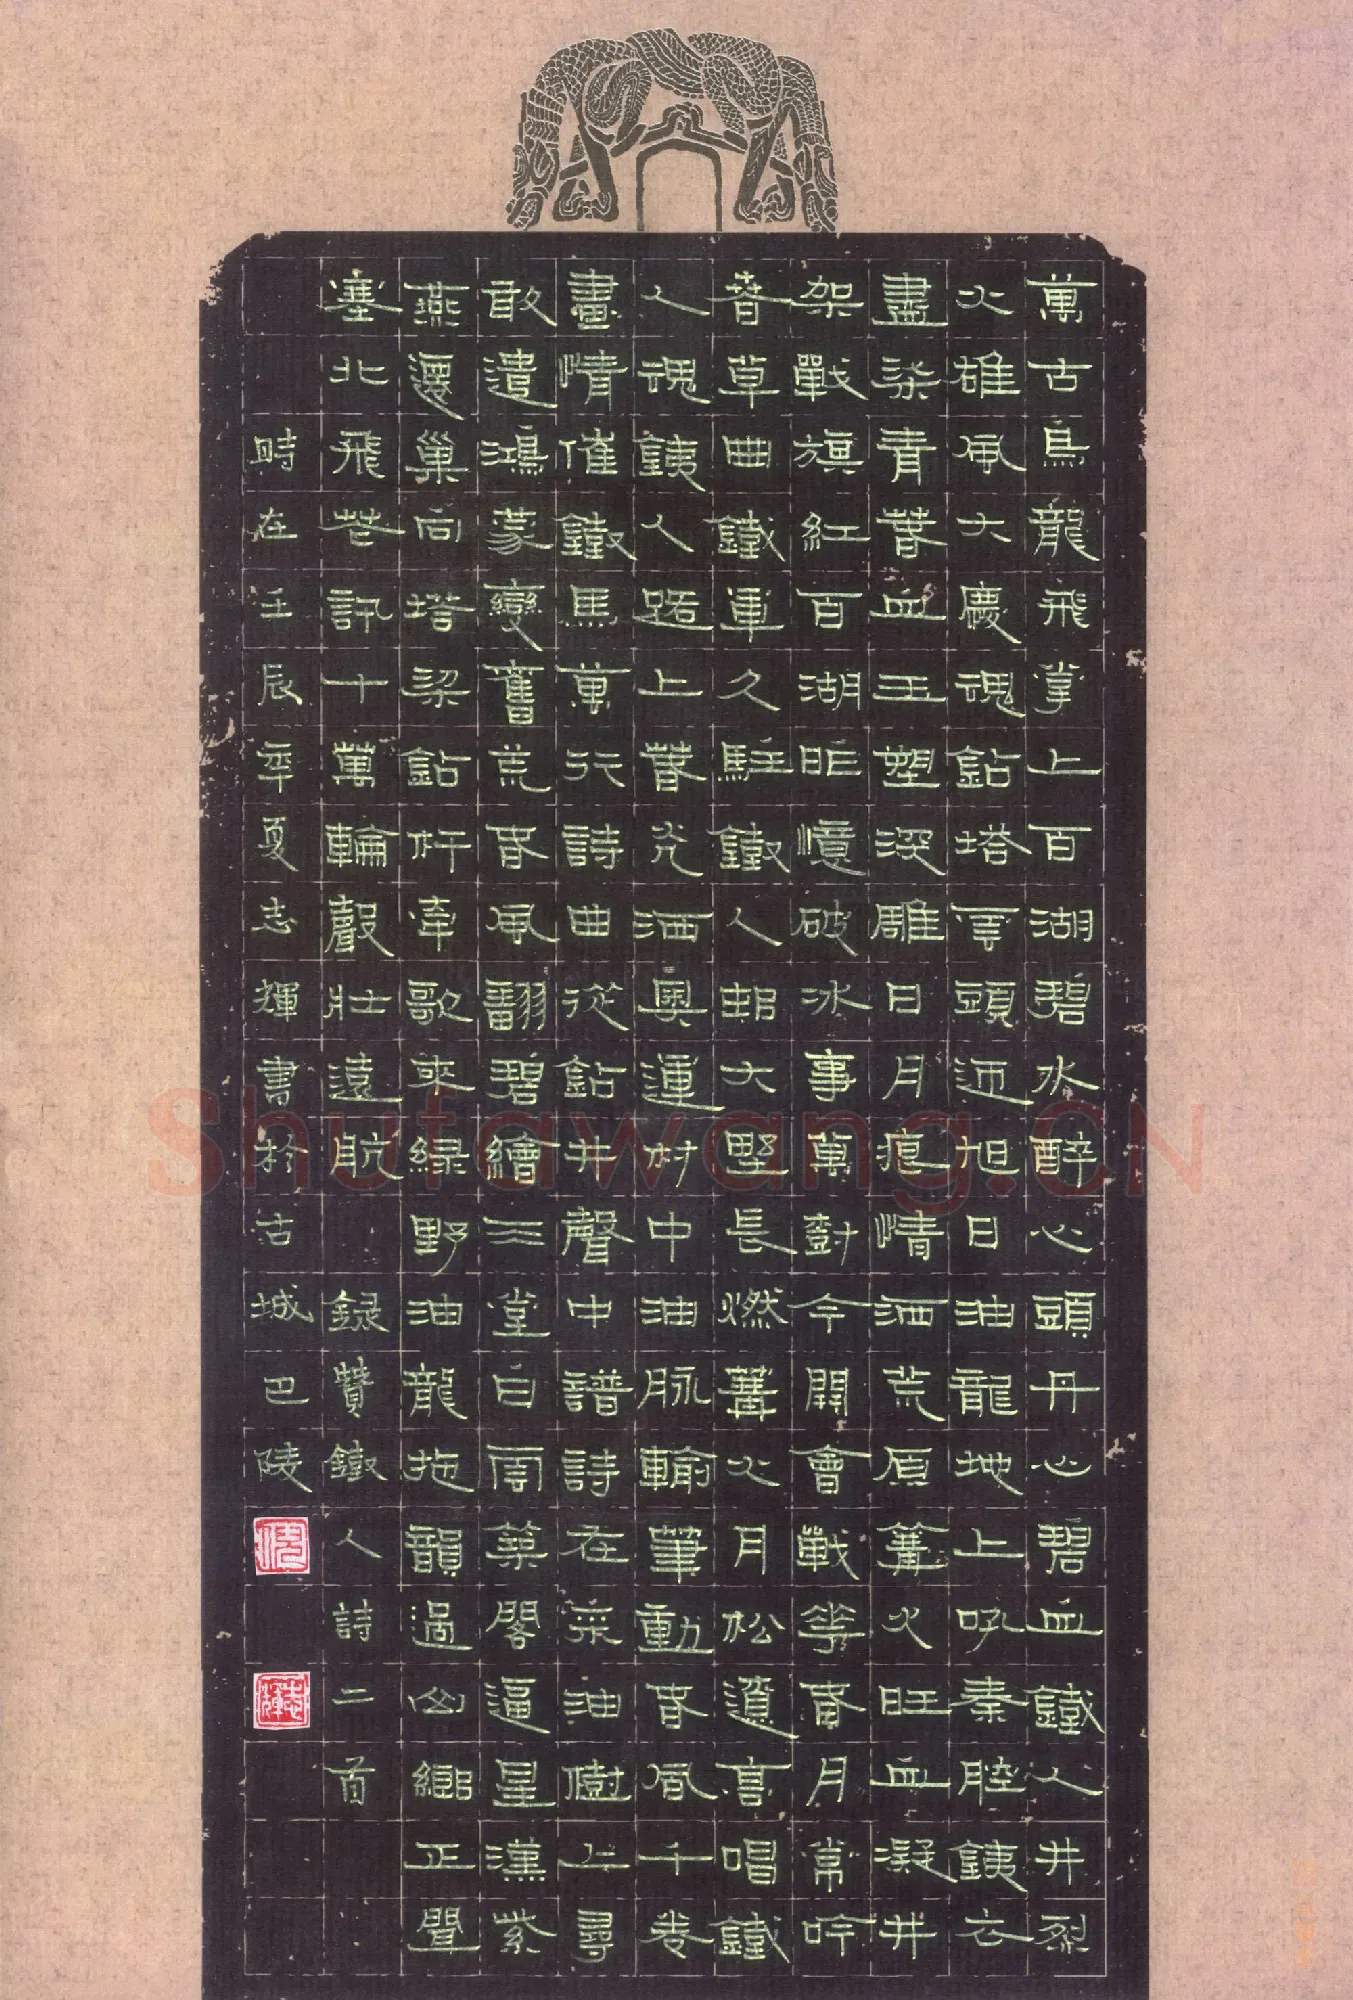 萬古烏龍飛掌上百湖碧水醉心頭丹心碧血鐵人井烈
火雄風大慶魂鉆塔雲頭迎旭日油龍地上吼秦腔鉄衣
盡染青春血玉塑深雕日月痕情洒荒原篝火旺血凝井
架戰旗紅百湖昨憶破冰事萬對今開會戰花春月常吟
春草曲鐵軍久駐鐵人邨大野長燃篝火月松遼高唱鐵
人魂鉄人路上春光洒奧運村中油脉輸筆動春風千卷
畫情催鐵馬萬行詩曲從鉆井聲中譜詩在采油樹上尋
敢遣鴻蒙變舊荒春風翻碧繪堂白雨築閣逼星漢紫
燕還巢向塔梁鉆杆牽歌來綠野油龍拖韻過山鄉正聞
塞北飛花訊十萬輪聲壯遠航 錄贊鐵人詩二首
時在壬辰年夏志輝書於古城巴陵
志輝
Shufawang.CN